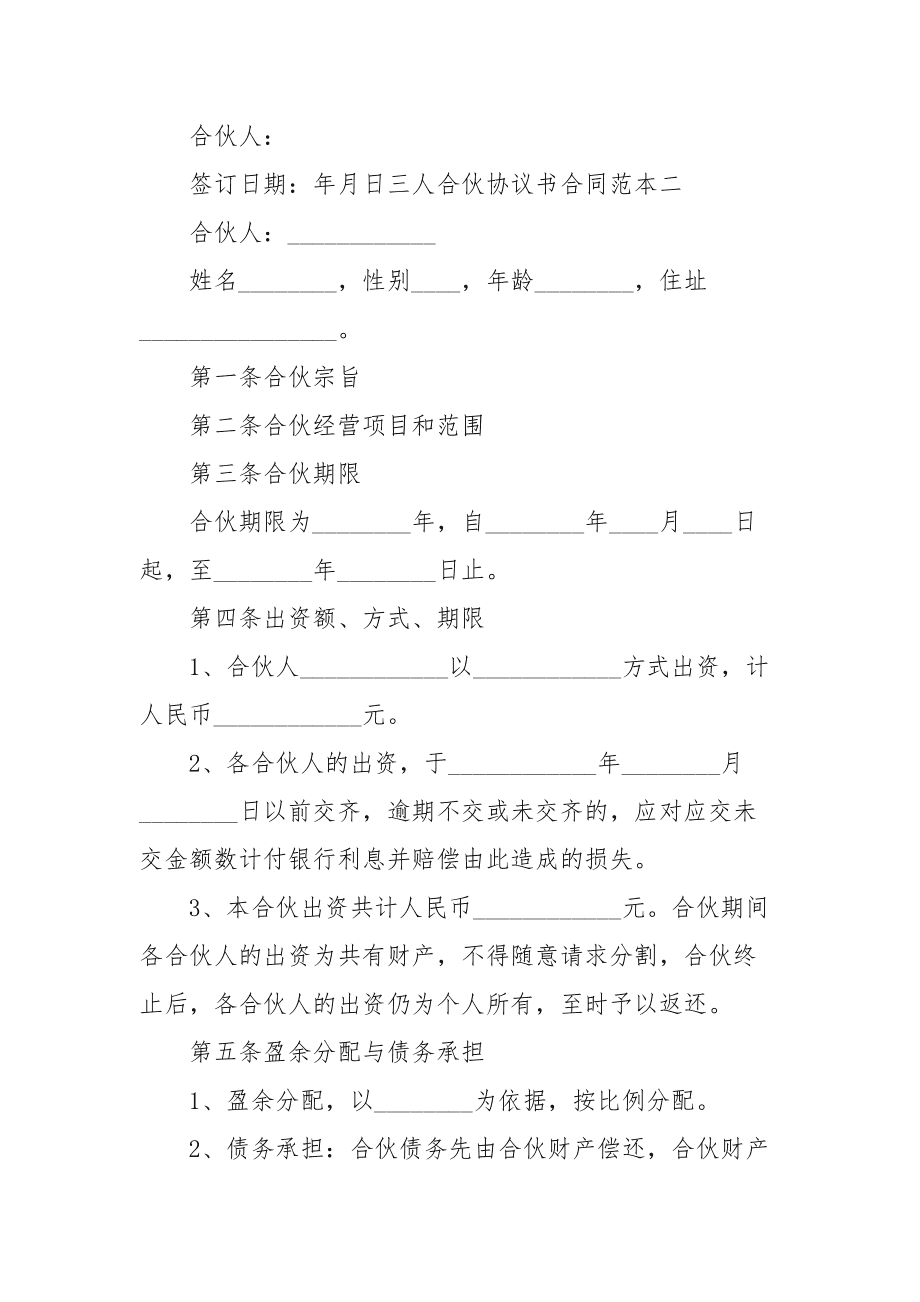 合伙人：
签订日期：年月日三人合伙协议书合同范本二
合伙人：____________
姓名________，性别____，年龄________，住址
________________。
第一条合伙宗旨
第二条合伙经营项目和范围
第三条合伙期限
合伙期限为________年，自________年____月____日
起，至________年________日止。
第四条出资额、方式、期限
1、合伙人____________以____________方式出资，计
人民币____________元。
2、各合伙人的出资，于____________年________月
________日以前交齐，逾期不交或未交齐的，应对应交未
交金额数计付银行利息并赔偿由此造成的损失。
3、本合伙出资共计人民币____________元。合伙期间
各合伙人的出资为共有财产，不得随意请求分割，合伙终
止后，各合伙人的出资仍为个人所有，至时予以返还。
第五条盈余分配与债务承担
1、盈余分配，以________为依据，按比例分配。
2、债务承担：合伙债务先由合伙财产偿还，合伙财产